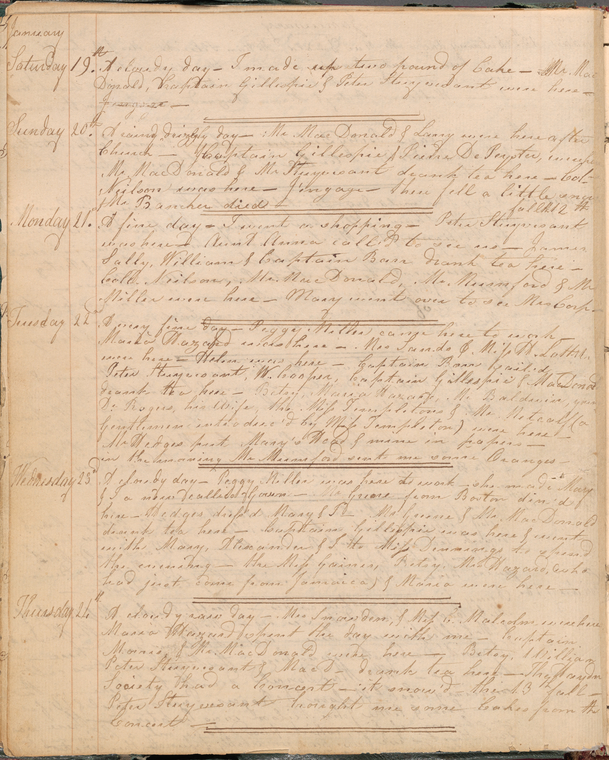 January
Saturday 19.th A cloudy day – I made up two pound of Cake – Mr. Mac
Donald, Captain Gillespie & Peter Stuyvesant were here –
Sunday 20.th A rainy drizzly day – Mr. MacDonald & Lucy were here after
Church – Captain Gillespie, Peirre De Peyster,
Mr. MacDonald & Mr Stuyvesant drank tea here – Col.
Neilson was here – then fell a little snow
Mr Bancker died – fall 12th
Monday 21. A fine day – I went a shopping – Peter Stuyvesant
was here – Aunt Anna called to see us – James
Sally, William & Captain Barr drank tea here –
Coll. Neilson, Mr. MacDonald, Mr. & Mr
Miller were here – Mary went over to see Mrs. Corp –
Tuesday 22.d A very fine day – Peggy Miller came here to work
Maria Hazard was here – Mrs Sands &
were here – Helen was here – Captain Barr Sailed
Peter Stuyvesant, W. Cooper, Captain Gillespie & MacDonald
drank tea here – Betsy, Maria Hazard, Mr. Baldwin, young
Dr Rogers, his Wife, the Miss Templetons & Mr. Metcalf (a
Gentleman introduc'd by Miss Templeton) were here –
Mr Hedges put Mary's Head & mine in papers –
in the morning Mr. sent me some Oranges –
Wednesday 23.d A cloudy day – Peggy Miller was here to work – she made Mary
& I a new Gown – from Boston din'd
here – Hedges dress'd Mary & I – Mr. & Mr. MacDonald
drank tea here – Captain Gillespie was here & went
with Mary, Alexander & I to Miss Demmings to spend
the evening – the Miss Gaines, Betsy, Mr. Hazard, (who
had just come from Jamaica) & Maria were here –
Thursday 24.th A cloudy raw day – Mrs & Miss Malcolm were here
Maria Hazard spent the day with me – Captain
Morris & Mr. MacDonald were here – Betsy, William
Peter Stuyvesant & MacD. drank tea here – The Haydn
Society had a Concert – it snow'd the 13 fall –
Peter Stuyvesant brought me some Cakes from the
Concert –